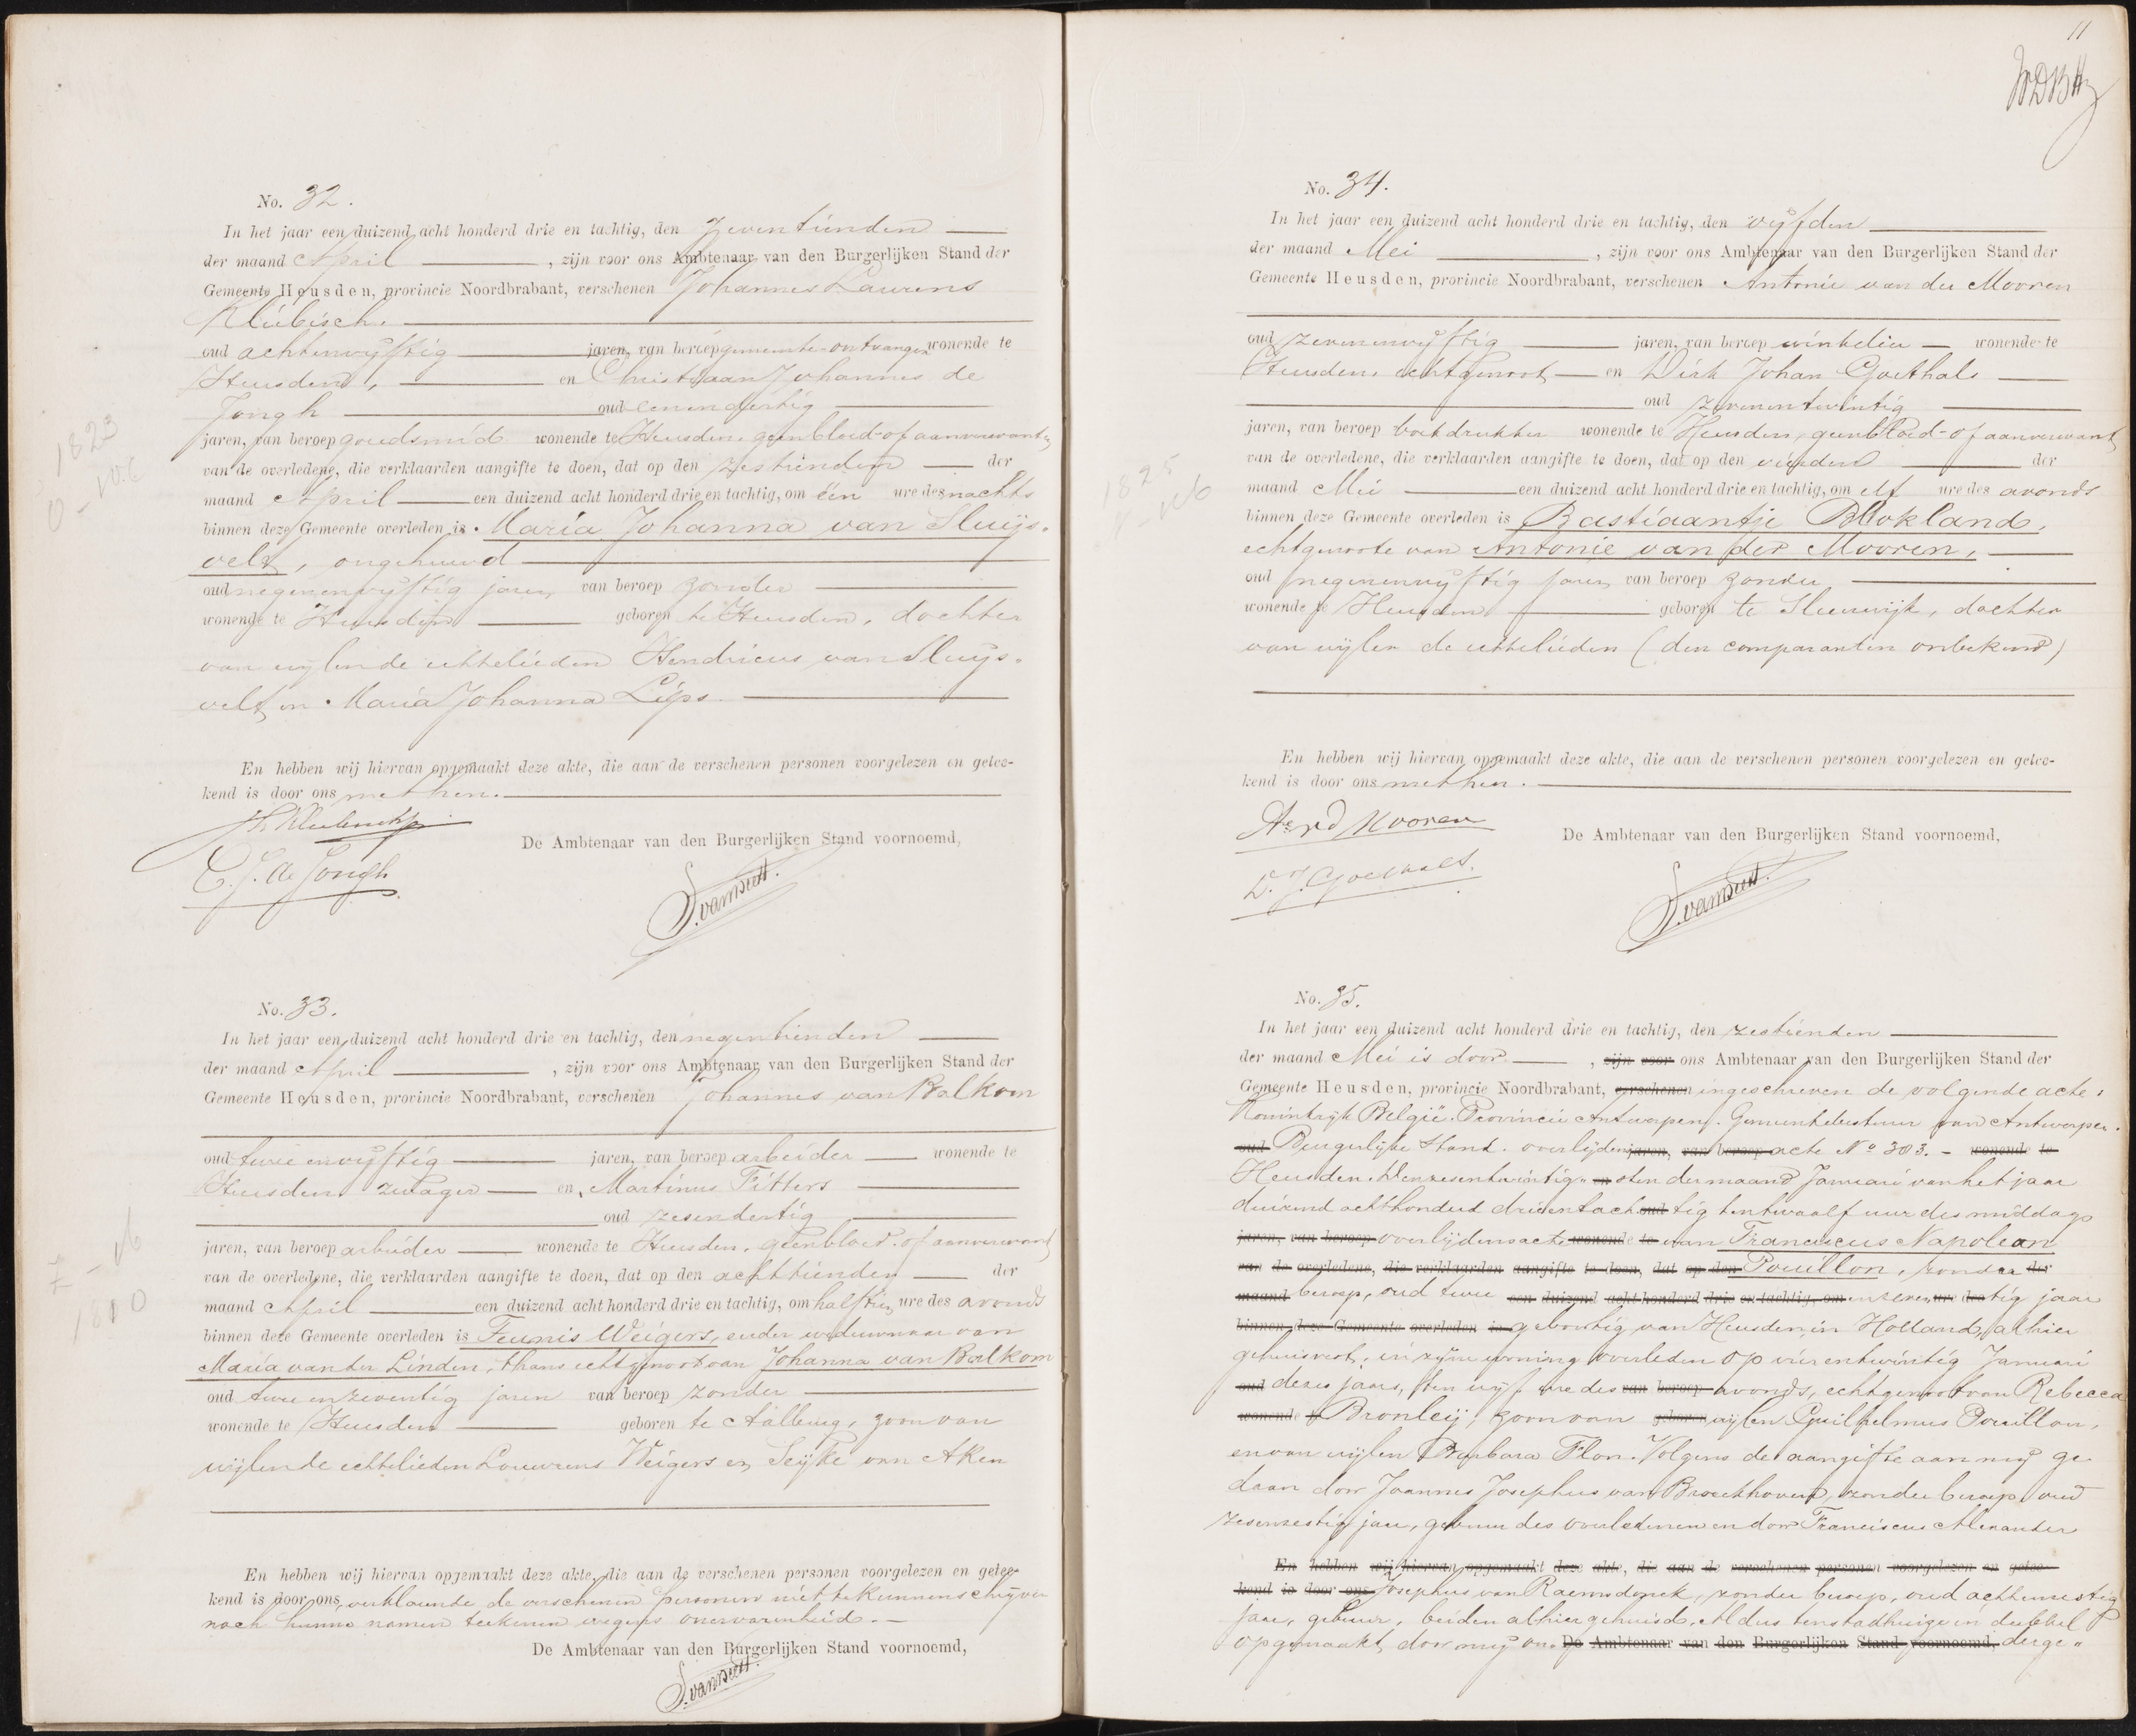 No. 32.
In het jaar een duizend acht honderd drie en tachtig, den zeventienden
der maand April, zijn voor ons Ambtenaar van den Burgerlijken Stand der
Gemeente Heusden, provincie Noordbrabant, verschenen Johannes Laurens
Klübisch.
oud achtenvijftig jaren, van beroep gemeente-ontvanger wonende te
Heusden, en Christiaan Johannes de
Jongh oud eenendertig
jaren, van beroep goudsmid wonende te Heusden, geen bloed- of aanverwanten
van de overledene, die verklaarden aangifte te doen, dat op den zestienden der
maand April een duizend acht honderd drie en tachtig, om één ure des nachts
binnen deze Gemeente overleden is Maria Johanna van Sluijs-
velt, ongehuwd
oud negenenvijftig jaren van beroep zonder
wonende te Heusden geboren te Heusden, dochter
van wijlen de echtelieden Hendricus van Sluijs-
velt en Maria Johanna Lips.
En hebben wij hiervan opgemaakt deze akte, die aan de verschenen personen voorgelezen en getee-
kend is door ons met hen.
C. J. de Jongh
De Ambtenaar van den Burgerlijken Stand voornoemd,
No. 33.
In het jaar een duizend acht honderd drie en tachtig, den negentienden
der maand April, zijn voor ons Ambtenaar van den Burgerlijken Stand der
Gemeente Heusden, provincie Noordbrabant, verschenen Johannes van Balkom
oud twee en vijftig jaren, van beroep arbeider wonende te
Heusden zwager en Martinus Fitters
oud zesendertig
jaren, van beroep arbeider wonende te Heusden, geen bloed- of aanverwant
van de overledene, die verklaarden aangifte te doen, dat op den achttienden der
maand April een duizend acht honderd drie en tachtig, om half tien ure des avonds
binnen deze Gemeente overleden is Teunis Weigers, eerder weduwnaar van
Maria van der Linden, thans echtgenoot van Johanna van Balkom
oud twee en zeventig jaren van beroep zonder
wonende te Heusden geboren te Aalburg, zoon van
wijlen de echtelieden Louwrens Weigers en Seijke van Aken
En hebben wij hiervan opgemaakt deze akte, die aan de verschenen personen voorgelezen en getee-
kend is door ons, verklarende de verschenen personen niet te kunnen schrijven
noch hunne namen teekenen wegens onervarenheid.
De Ambtenaar van den Burgerlijken Stand voornoemd,
11
No. 34.
In het jaar een duizend acht honderd drie en tachtig, den vijfden
der maand Mei, zijn voor ons Ambtenaar van den Burgerlijken Stand der
Gemeente Heusden, provincie Noordbrabant, verschenen Antonie van der Mooren
oud zevenenvijftig jaren, van beroep winkelier wonende te
Heusden, echtgenoot en Dirk Johan Goethals
oud zevenentwintig
jaren, van beroep boekdrukker wonende te Heusden, geen bloed- of aanverwant
van de overledene, die verklaarden aangifte te doen, dat op den vierden der
maand Mei een duizend acht honderd drie en tachtig, om elf ure des avonds
binnen deze Gemeente overleden is Bastiaantje Blokland,
echtgenoote van Antonie van der Mooren,
oud negenenvijftig jaren van beroep zonder
wonende te Heusden geboren te Sleeuwijk, dochter
van wijlen de echtelieden (den comparanten onbekend)
En hebben wij hiervan opgemaakt deze akte, die aan de verschenen personen voorgelezen en getee-
kend is door ons met hen.
D. J. Goethals.
De Ambtenaar van den Burgerlijken Stand voornoemd,
No. 35.
In het jaar een duizend acht honderd drie en tachtig, den zestienden
der maand Mei is door, zijn voor ons Ambtenaar van den Burgerlijken Stand der
Gemeente Heusden, provincie Noordbrabant, verschenen ingeschreven de volgende acte:
Koninkrijk België. Provincie Antwerpen. Gemeentebestuur van Antwerpen.
oud Burgerlijke Stand. overlijden jaren, van beroep acte No 303. - wonende te
Heusden. Den zesentwintig- en sten der maand Januari van het jaar
duizend achthonderd drieentach oud tig ten twaalf uur des middags
jaren, van beroep overlijdensacte wonende te van Franciscus Napoleon
van de overledene, die verklaarden aangifte te doen, dat op den Pouillon, zonder der
maand beroep, oud twee een duizend acht honderd drie en tachtig, om enzeven ure des tig jaar
binnen deze Gemeente overleden is geboortig van Heusden, in Holland, alhier
gehuisvest, in zijne woning overleden op vierentwintig Januari
oud dezes jaars, ten vijf ure des van beroep avonds, echtgenoot van Rebecca
wonende te Bronleij, zoon van geboren wijlen Guilhelmus Pouillon,
en van wijlen Barbara Flon. Volgens de aangifte aan mij ge-
daan door Joannes Josephus van Broeckhoven, zonder beroep, oud
zesenzestig jaar, gebuur des overledenen en door Franciscus Alexander
En hebben wij hiervan opgemaakt deze akte, die aan de verschenen personen voorgelezen en getee-
kend is door ons Josephus van Raemdonck, zonder beroep, oud achtenzestig
jaar, gebuur, beiden alhier gehuisd. Aldus ten stadhuize in dubbel
opgemaakt door mij on- De Ambtenaar van den Burgerlijken Stand voornoemd, derge-